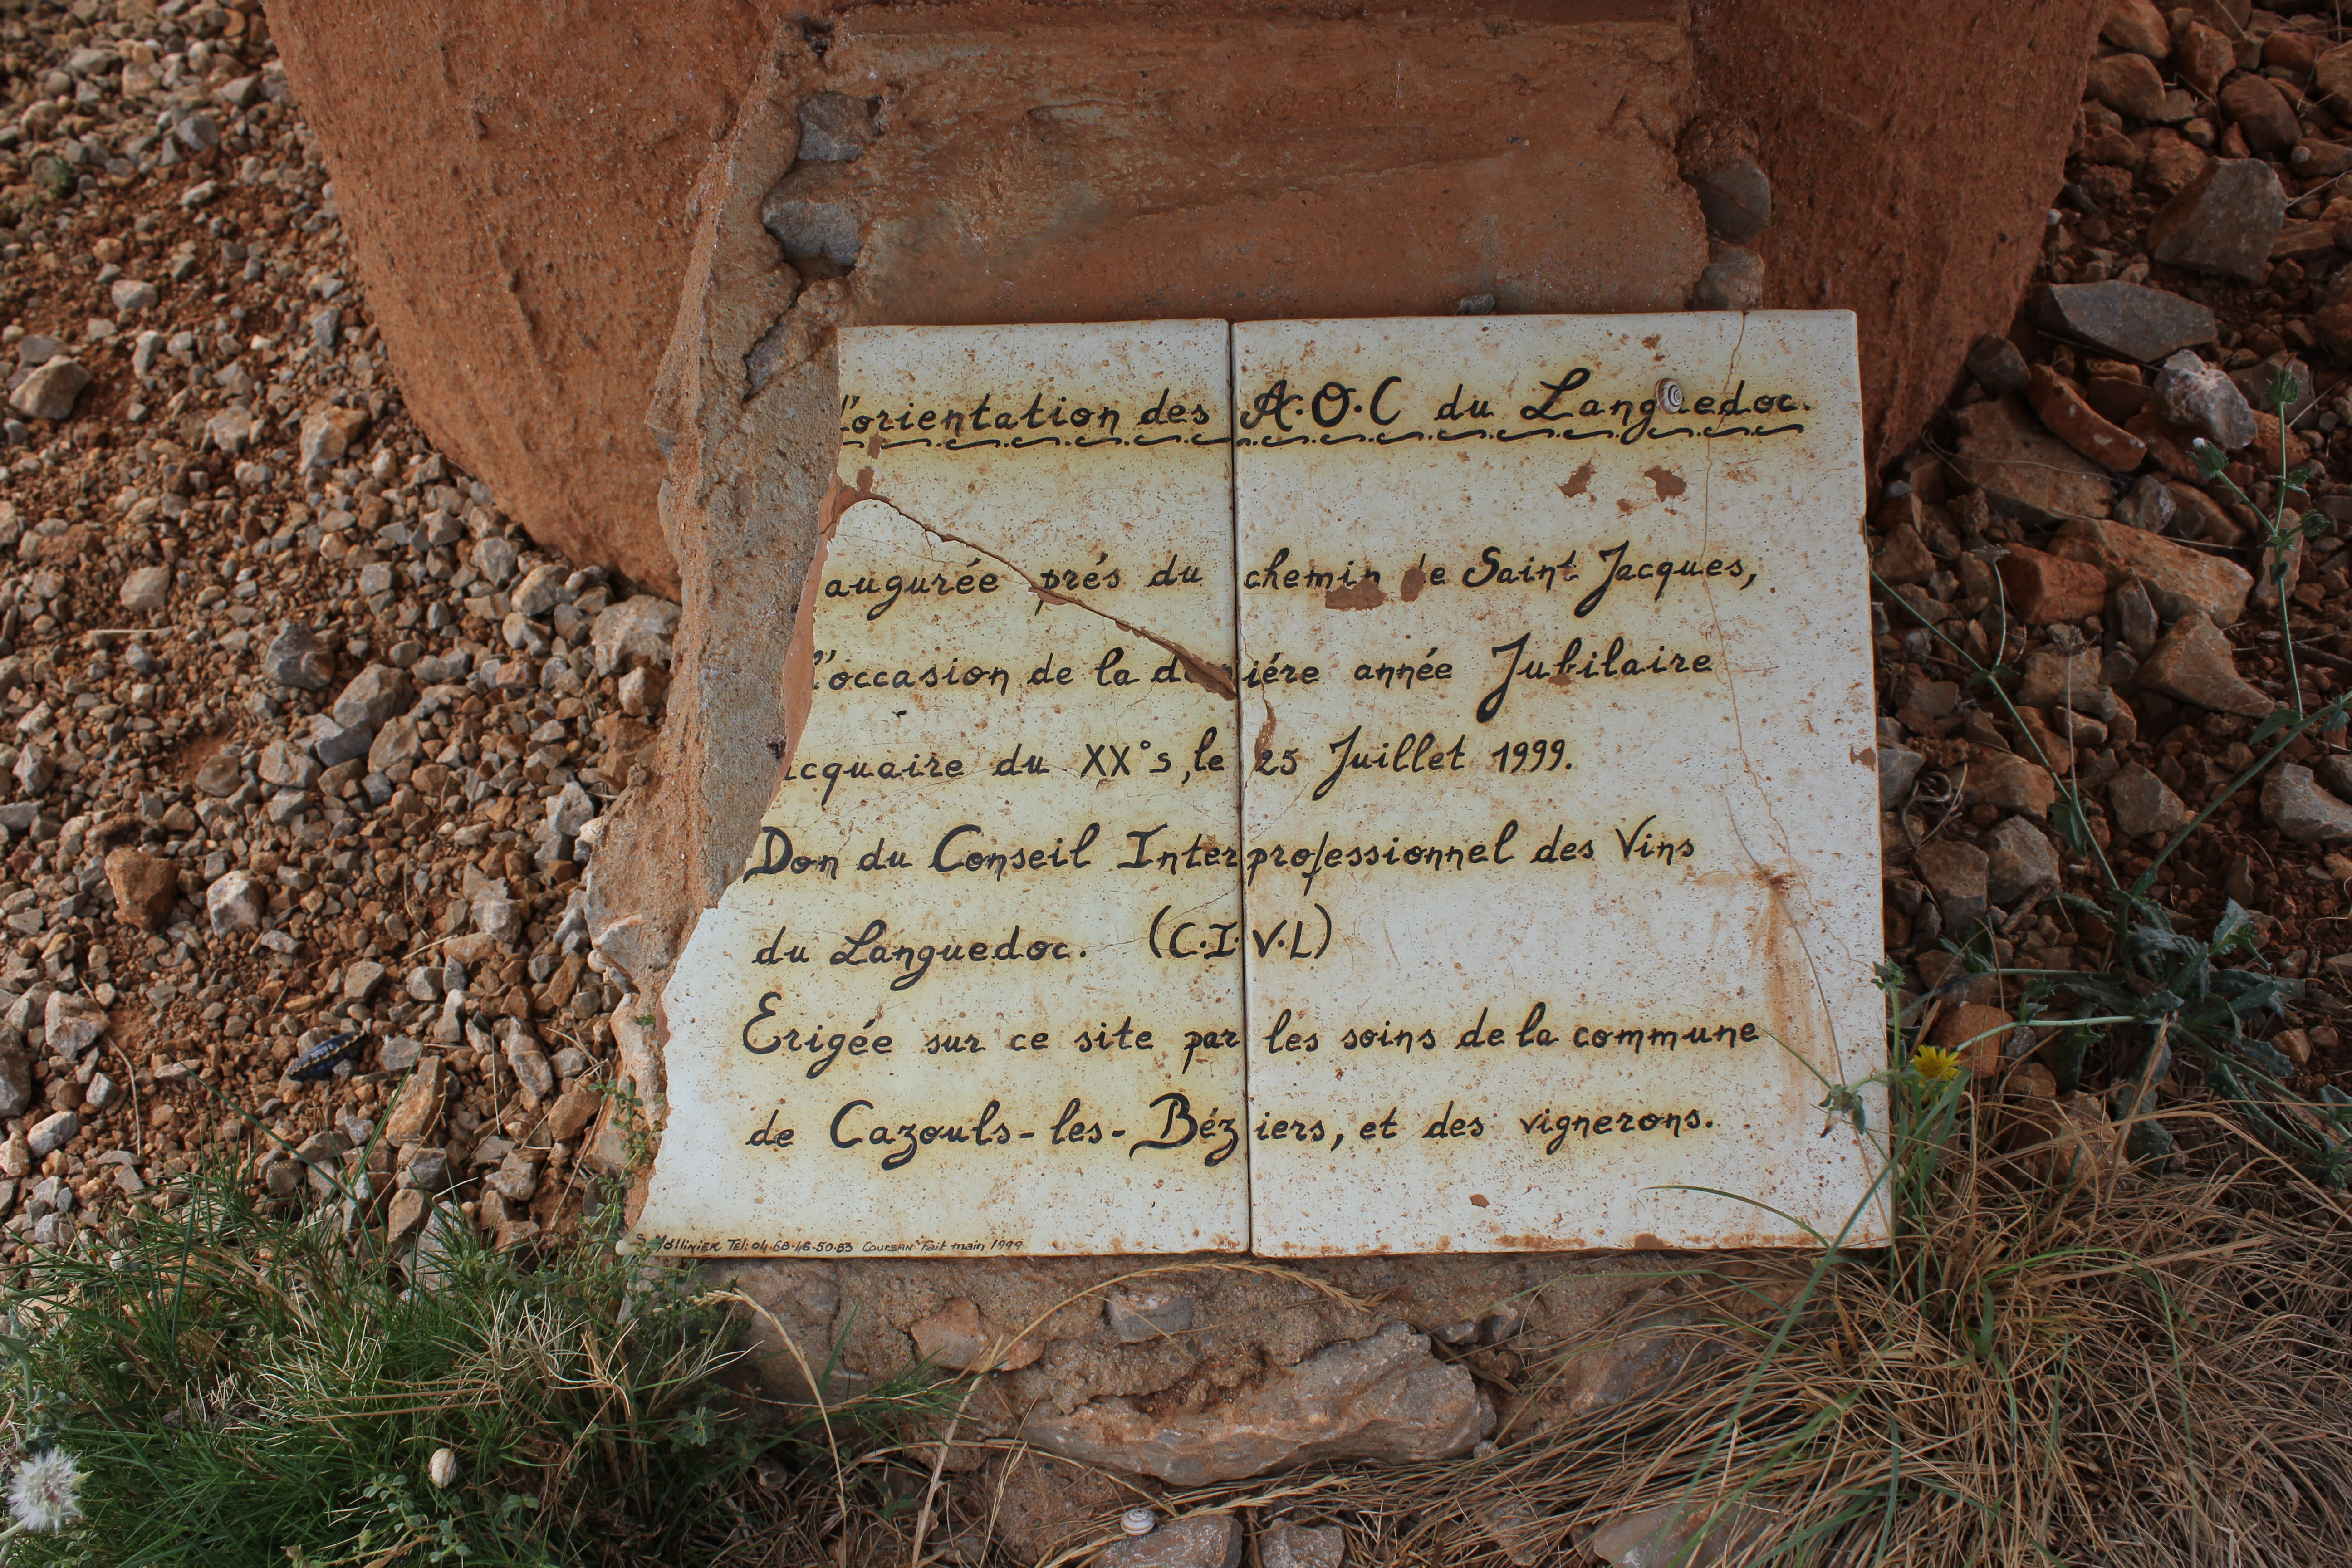 l'orientation des A.O.C du Languedoc.
augurée prés du chemin de Saint Jacques,
l'occasion de la derniére année Jubilaire
acquaire du XX°s, le 25 Juillet 1999.
Don du Conseil Interprofessionnel des Vins
du Languedoc. (C.I.V.L)
Erigée sur ce site par les soins de la commune
de Cazouls-les-Béziers, et des vignerons.
S. Mollinier Tél: 04.68.46.50.83 Coursan Fait main 1999